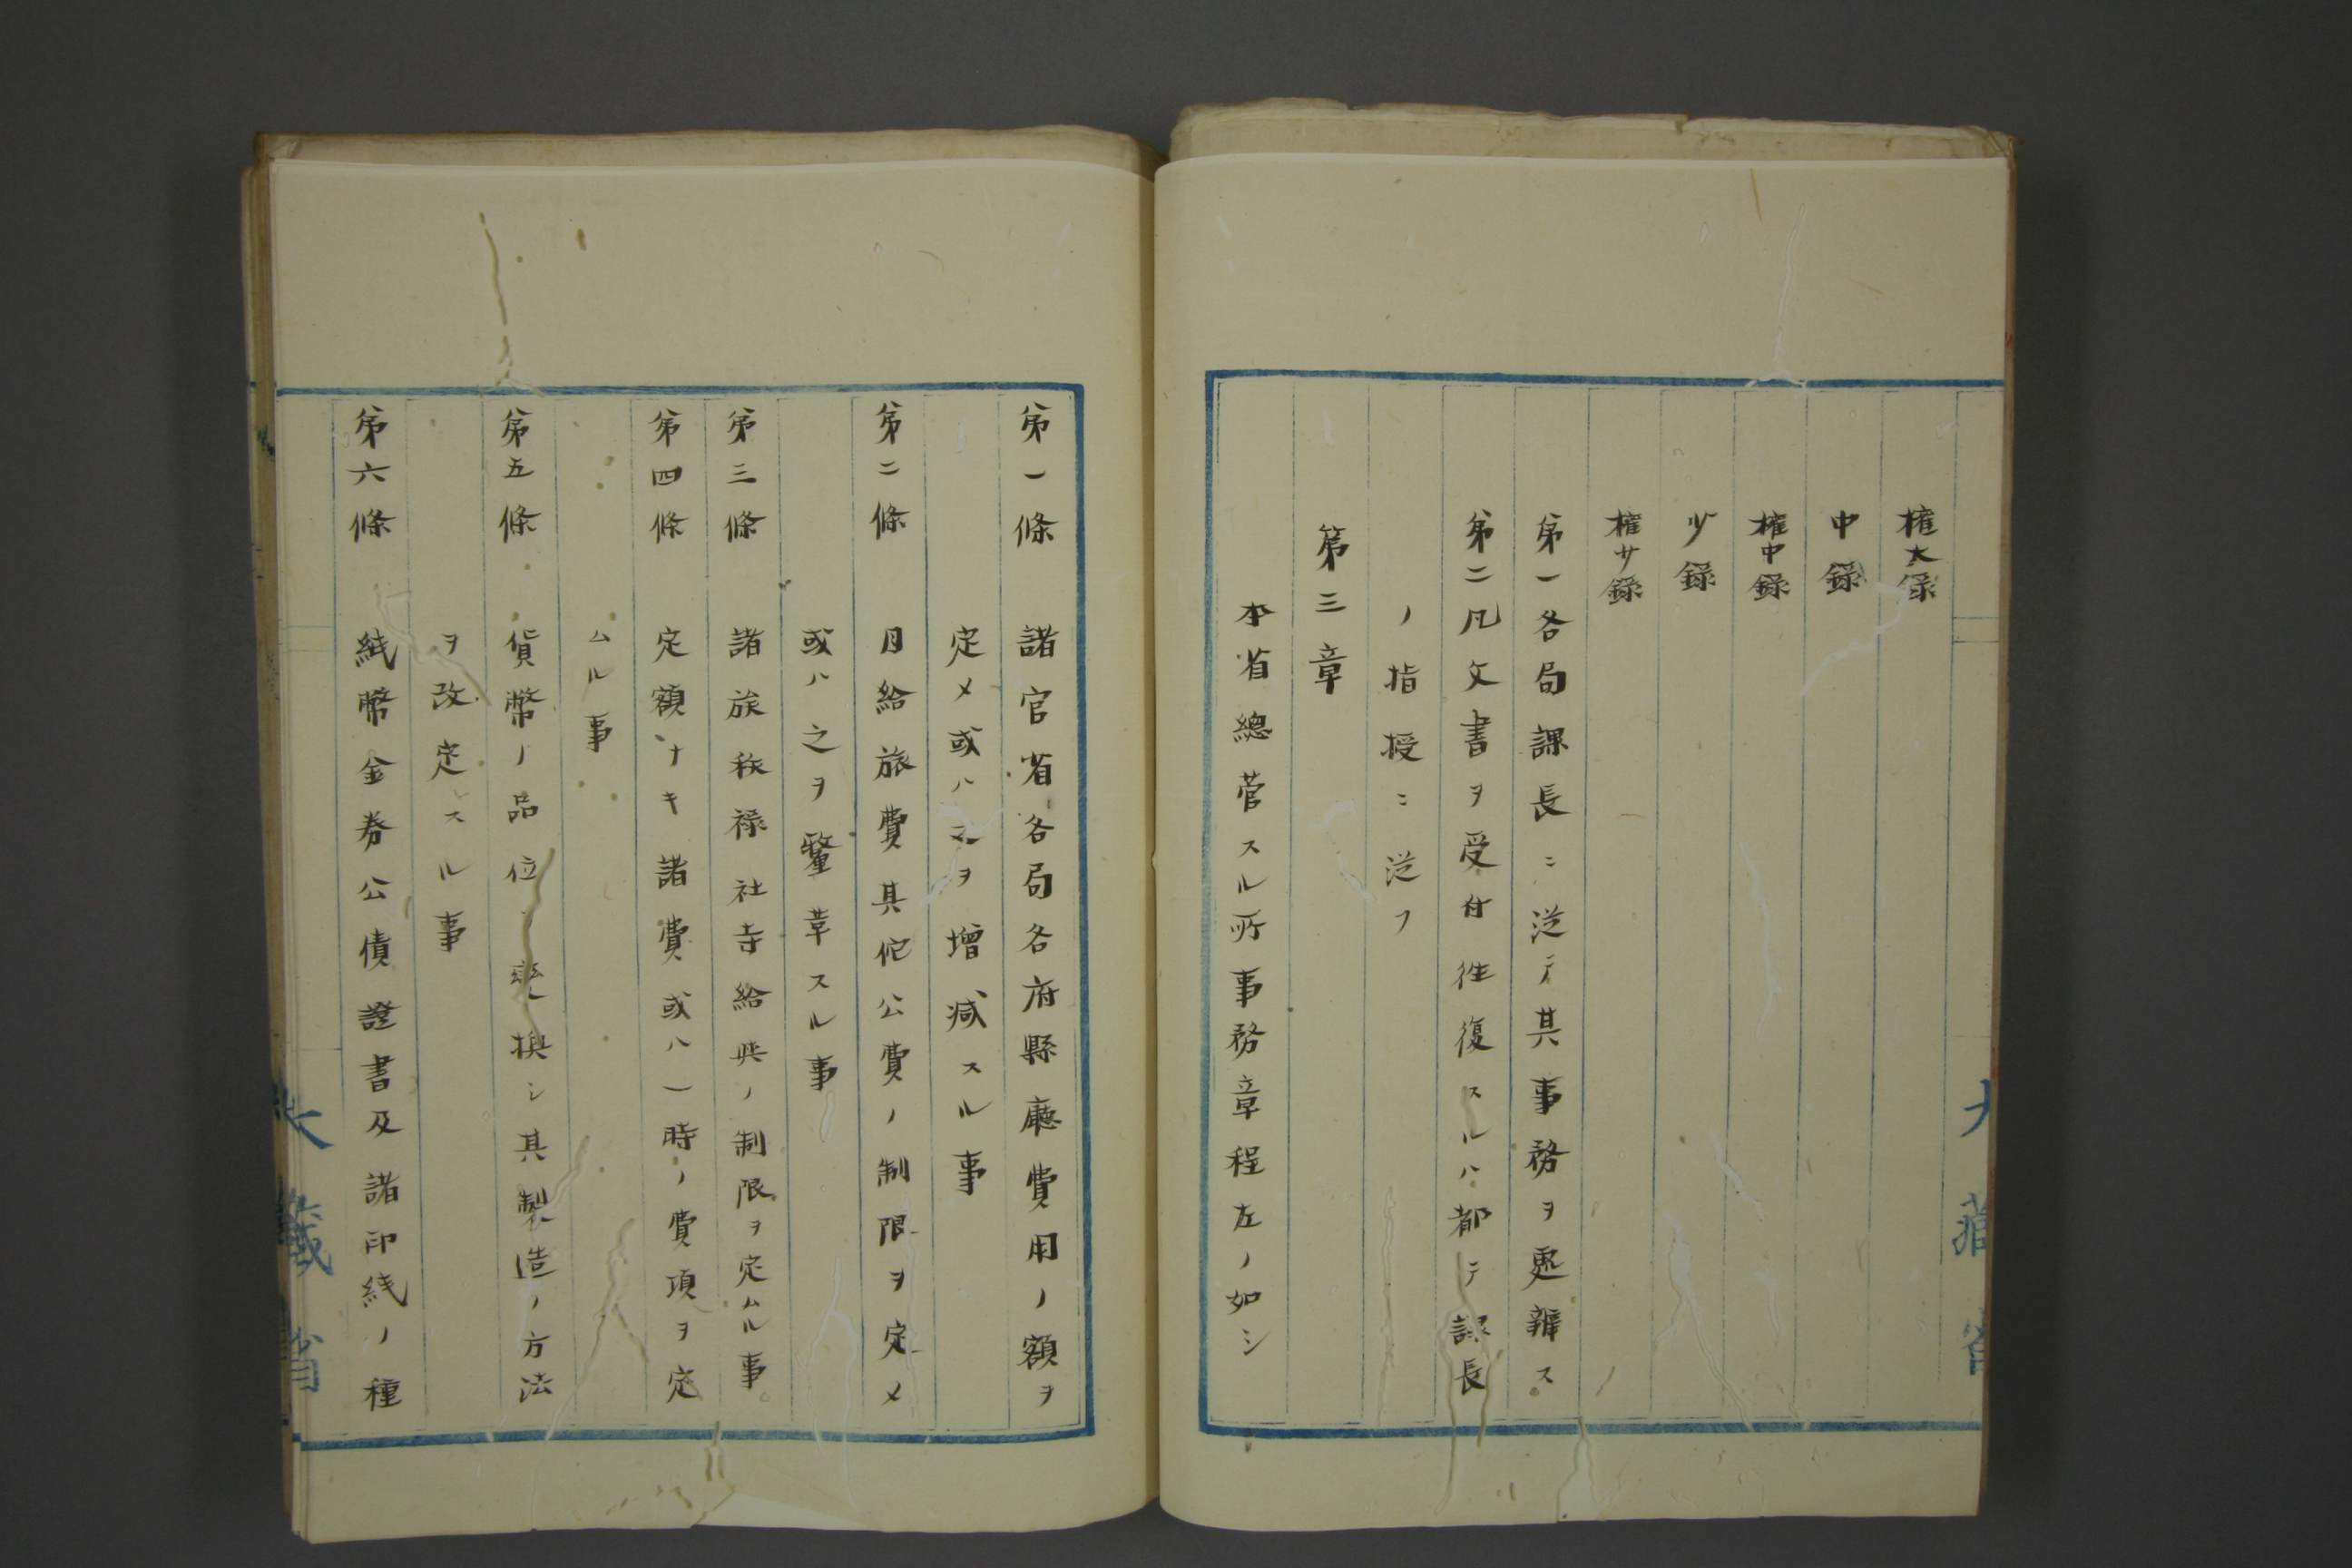 權大録
中録
權中録
少録
權少録
第一各局課長ニ従テ其事務ヲ處辨ス
第二凡文書ヲ受付徃復スルハ都テ課長
ノ指授ニ従フ
第三章
本省總管スル所事務章程左ノ如シ
第一條 諸官省各局各府縣廳費用ノ額ヲ
定メ或ハ之ヲ増減スル事
第二條 月給旅費其他公費ノ制限ヲ定メ
或ハ之ヲ釐革スル事
第三條 諸族秩禄社寺給與ノ制限ヲ定ムル事
第四條 定額ナキ諸費或ハ一時ノ費項ヲ定
ムル事
第五條 貨幣ノ品位ヲ變換シ其製造ノ方法
ヲ改定スル事
第六條 紙幣金券公債證書及諸印紙ノ種
大藏省